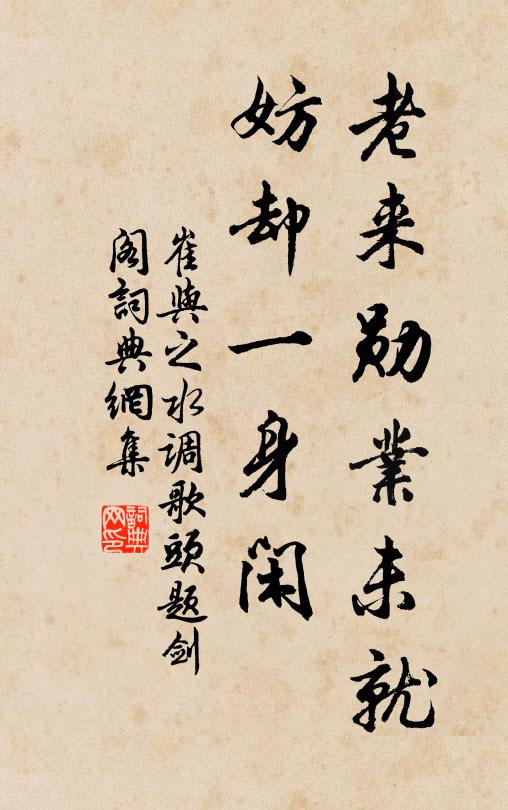 老来勋業未就
妨却一身闲
崔與之水调歌頭题剑
阁詞典網集
詞典
网印